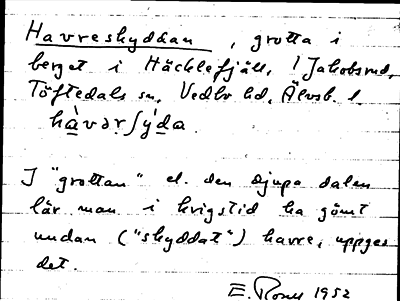 Havreskyddan, grotta i
berget i Häcklefjäll, / Jakobsrud,
Töftedals sn, Vedbo hd, Älvsb. l.
hàvərʃyda.
I "grottan" el. den djupa dalen
lär man i krigstid ha gömt
undan ("skyddat") havre, uppges
det.
E. 1952